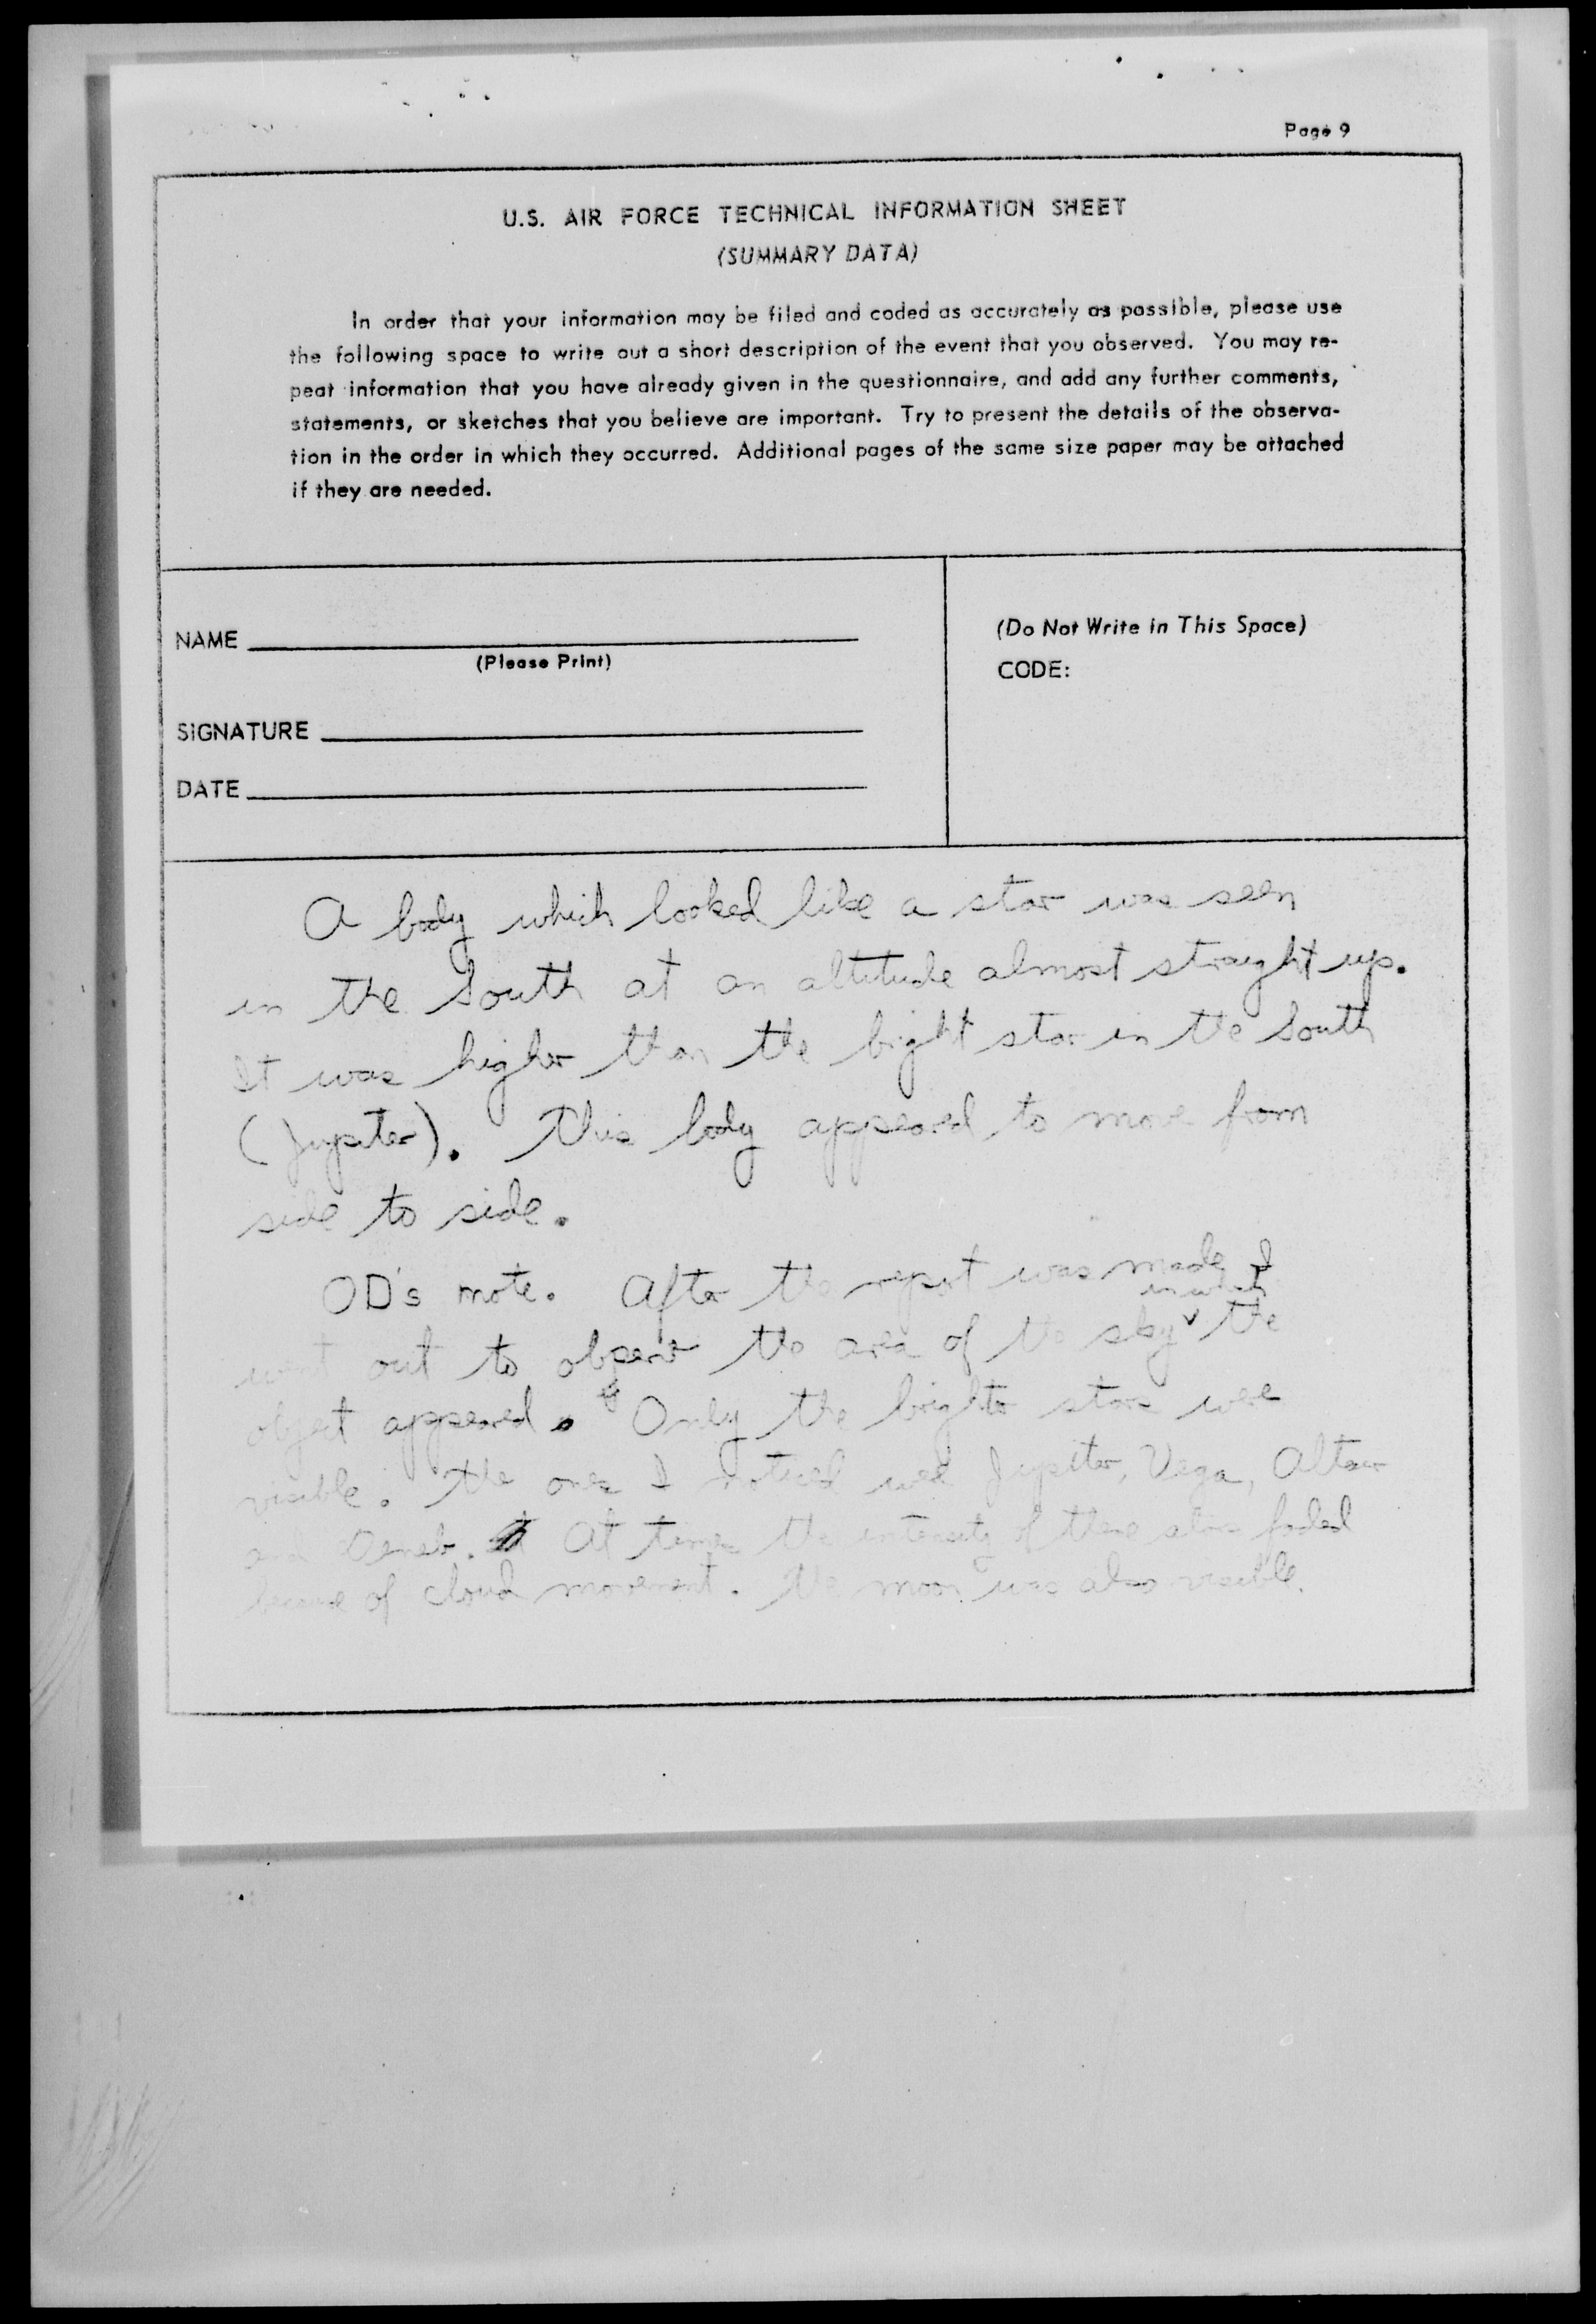 Page 9
U.S. AIR FORCE TECHNICAL INFORMATION SHEET
(SUMMARY DATA)
In order that your information may be filed and coded as accurately as possible, please use
the following space to write out a short description of the event that you observed. You may re-
peat information that you have already given in the questionnaire, and add any further comments,
statements, or sketches that you believe are important. Try to present the details of the observa-
tion in the order in which they occurred. Additional pages of the same size paper may be attached
if they are needed.
NAME
(Please Print)
SIGNATURE
DATE
(Do Not Write in This Space)
CODE:
A body which looked like a star was seen
in the South at an altitude almost straight up.
It was higher than the bright star in the South
(Jupiter). This body appeared to move from
side to side.
OD's note. After the report was made I
in which
went out to observe the area of the sky the
object appeared. Only the brighter stars were
visible. The ones I noticed were Jupiter, Vega, Altair
and Deneb. At times the intensity of these stars faded
because of cloud movement. The moon was also visible.